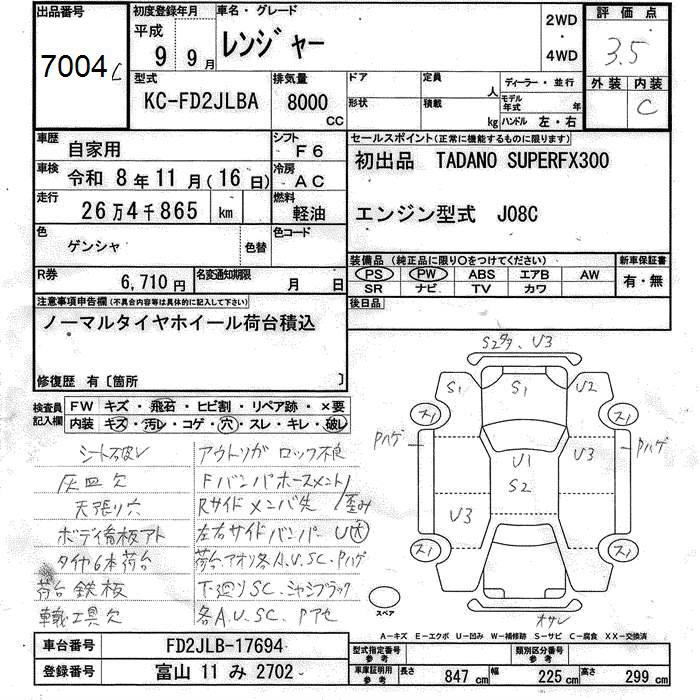 出品番号
7004
初度登録年月
平成
9 9月
車名・グレード
レンジャー
2WD
・
4WD
評価点
3.5
外装 内装
C
型式
KC-FD2JLBA
排気量
8000
CC
ドア
形状
定員
人
積載
kg
ディーラー・並行
モデル年式 年
ハンドル 左・右
車歴
自家用
シフト
F6
車検
令和 8年11月(16日)
冷房
AC
走行
26万4千865 km
燃料
軽油
色
ゲンシャ
色替
色コード
R券
6,710円
名変通知期限
月 日
セールスポイント(正常に機能するものに限ります)
初出品 TADANO SUPERFX300
エンジン型式 J08C
装備品 (純正品に限り○をつけてください)
PS PW ABS エアB AW
SR ナビ TV カワ
新車保証書
有・無
後日品
注意事項申告欄(不具合内容等は具体的に記入して下さい)
ノーマルタイヤホイール荷台積込
修復歴 有〔箇所 〕
検査員記入欄
FW キズ・飛石・ヒビ割・リペア跡・×要
内装 キズ・汚レ・コゲ・穴・スレ・キレ・破レ
シート破レ
灰皿欠
天張リ穴
ボディ看板アト
タイヤ6本荷台
荷台鉄板
車載工具欠
アウトリガ ロック不良
Fバンパホースメント/
Rサイドメンバ先/歪み
左右サイドバンパー U大
荷台アオリ各A.U.SC.Pハゲ
下廻りSC.シャシブラック
各A.U.SC.Pアセ
S2多、U3
S1
S1
U2
スリ
スリ
Pハゲ
Pハゲ
U1
U3
S2
U3
スリ
スリ
オサレ
スペア
A-キズ E-エクボ U-凹み W-補修跡 S-サビ C-腐食 XX-交換済
車台番号
FD2JLB-17694
登録番号
富山 11 み 2702
型式指定番号
参考
類別区分番号
参考
車庫証明用
参考
長さ 847cm 幅 225cm 高さ 299cm